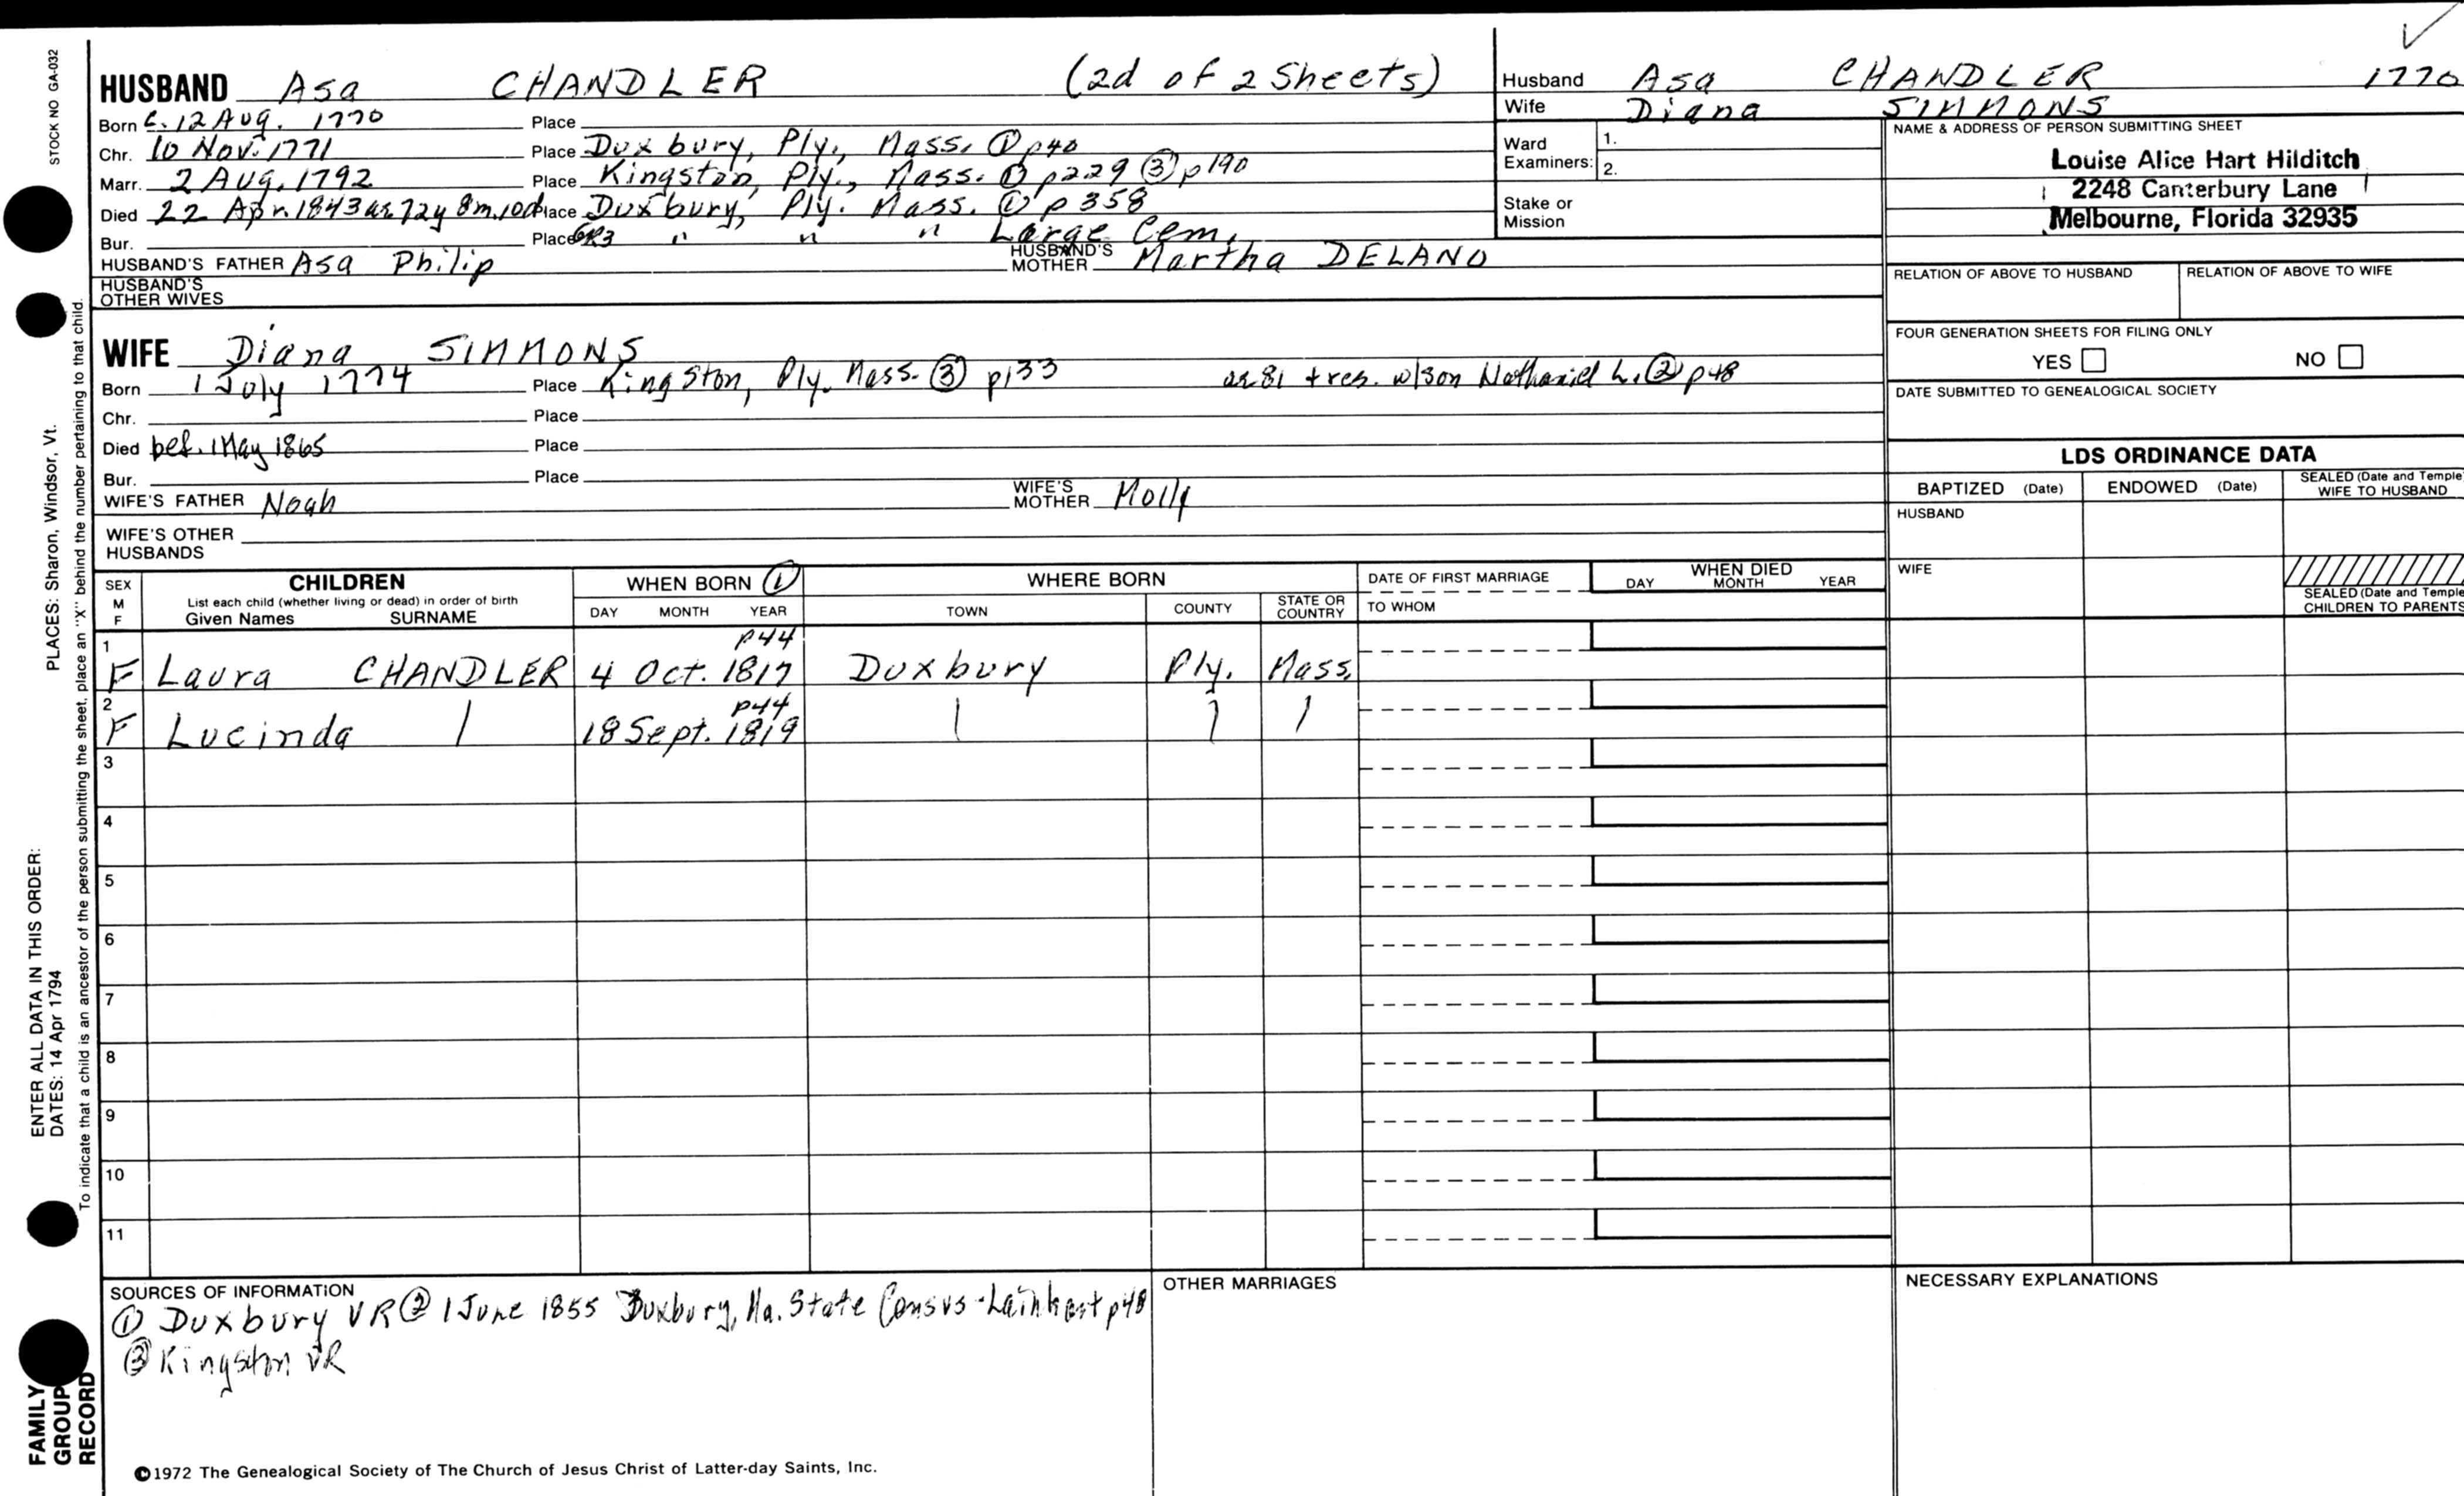 STOCK NO GA-032
HUSBAND Asa CHANDLER (2d of 2 Sheets)
Born C. 12 Aug. 1770 Place
Chr. 10 Nov. 1771 Place Duxbury, Ply., Mass. ① p40
Marr. 2 Aug. 1792 Place Kingston, Ply., Mass. ① p229 ③ p190
Died 22 Apr. 1843 ae 72y 8m. 10d Place Duxbury, Ply. Mass. ① p 358
Bur. Place GR3 " " " Large Cem.
HUSBAND'S FATHER Asa Philip HUSBAND'S MOTHER Martha DELANO
HUSBAND'S OTHER WIVES
WIFE Diana SIMMONS
Born 1 July 1774 Place Kingston, Ply. Mass. ③ p133 ae 81 + res. w/son Nathaniel L. ② p48
Chr. Place
Died bef. 1 May 1865 Place
Bur. Place
WIFE'S FATHER Noah WIFE'S MOTHER Molly
WIFE'S OTHER HUSBANDS
Husband Asa CHANDLER 1770
Wife Diana SIMMONS
Ward Examiners: 1.
2.
Stake or Mission
NAME & ADDRESS OF PERSON SUBMITTING SHEET
Louise Alice Hart Hilditch
2248 Canterbury Lane
Melbourne, Florida 32935
RELATION OF ABOVE TO HUSBAND RELATION OF ABOVE TO WIFE
FOUR GENERATION SHEETS FOR FILING ONLY
YES NO
DATE SUBMITTED TO GENEALOGICAL SOCIETY
LDS ORDINANCE DATA
BAPTIZED (Date) ENDOWED (Date) SEALED (Date and Temple) WIFE TO HUSBAND
HUSBAND
WIFE
SEALED (Date and Temple) CHILDREN TO PARENTS
SEX M F CHILDREN List each child (whether living or dead) in order of birth Given Names SURNAME WHEN BORN ① DAY MONTH YEAR WHERE BORN TOWN COUNTY STATE OR COUNTRY DATE OF FIRST MARRIAGE TO WHOM WHEN DIED DAY MONTH YEAR
1 p44
F Laura CHANDLER 4 Oct. 1817 Duxbury Ply. Mass.
2 p44
F Lucinda | 18 Sept. 1819 | | |
3
4
5
6
7
8
9
10
11
SOURCES OF INFORMATION
① Duxbury VR ② 1 June 1855 Duxbury, Ma. State Census - Lainhart p48
③ Kingston VR
OTHER MARRIAGES
NECESSARY EXPLANATIONS
©1972 The Genealogical Society of The Church of Jesus Christ of Latter-day Saints, Inc.
ENTER ALL DATA IN THIS ORDER:
DATES: 14 Apr 1794 PLACES: Sharon, Windsor, Vt.
To indicate that a child is an ancestor of the person submitting the sheet, place an "X" behind the number pertaining to that child.
FAMILY
GROUP
RECORD